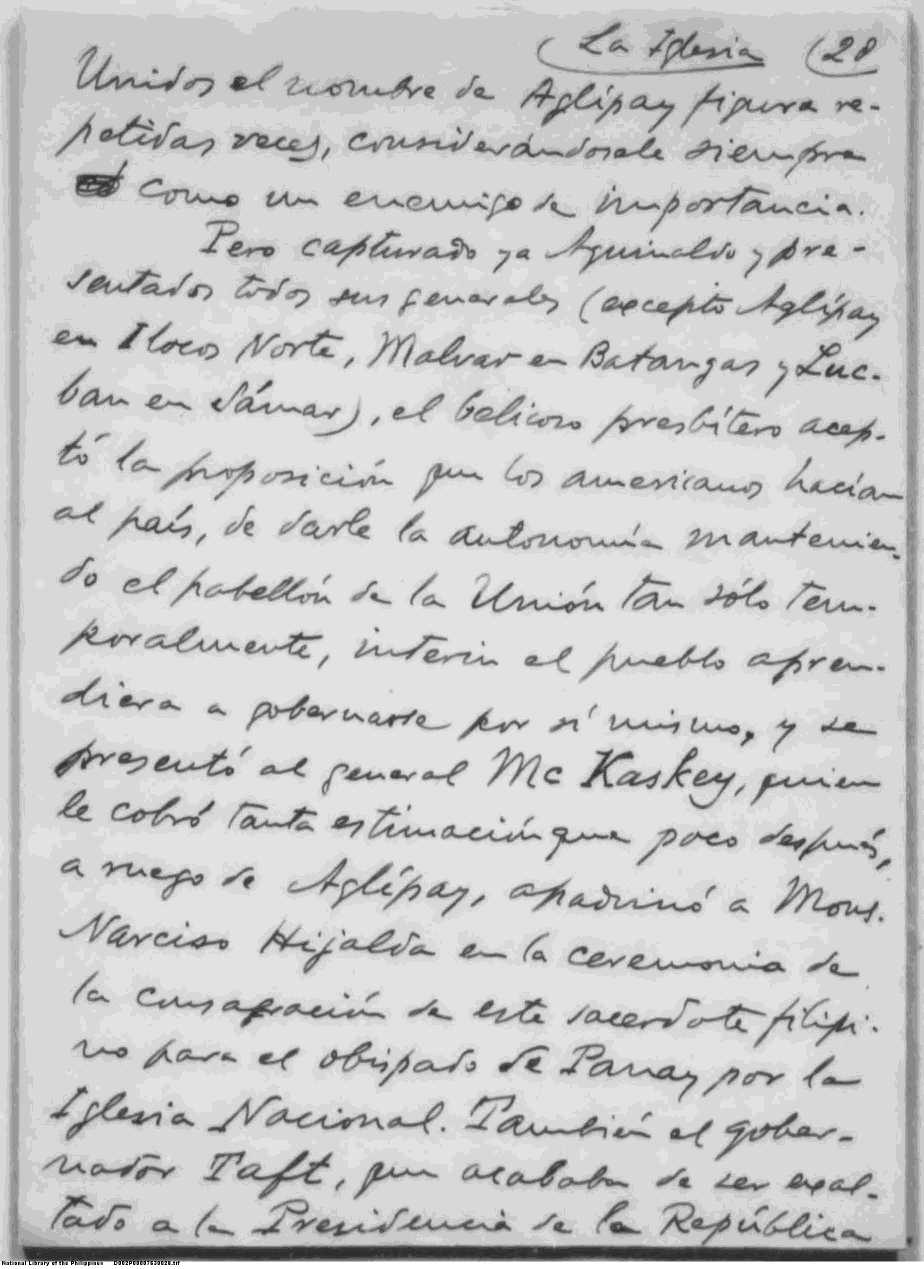 La Iglesia (28
Unidos el nombre de Aglípay figura re-
petidas veces, considerándosele siempre
como un enemigo de importancia.
Pero capturado ya Aguinaldo y pre-
sentados todos sus generales (excepto Aglípay
en Ilocos Norte, Malvar en Batangas y Luc-
ban en Sámar), el belicoso presbítero acep-
tó la proposición que los americanos hacían
al país, de darle la autonomía mantenien-
do el pabellón de la Unión tan sólo tem-
poralmente, interin el pueblo apren-
diera a gobernarse por sí mismo, y se
presentó al general Mc Kaskey, quien
le cobró tanta estimación que poco después,
a ruego de Aglípay, apadrinó a Mons.
Narciso Hijalda en la ceremonia de
la consagración de este sacerdote filipi-
no para el obispado de Panay por la
Iglesia Nacional. También el gober-
nador Taft, que acababa de ser exal-
tado a la Presidencia de la República
National Library of the Philippines D002P00087630028.tif